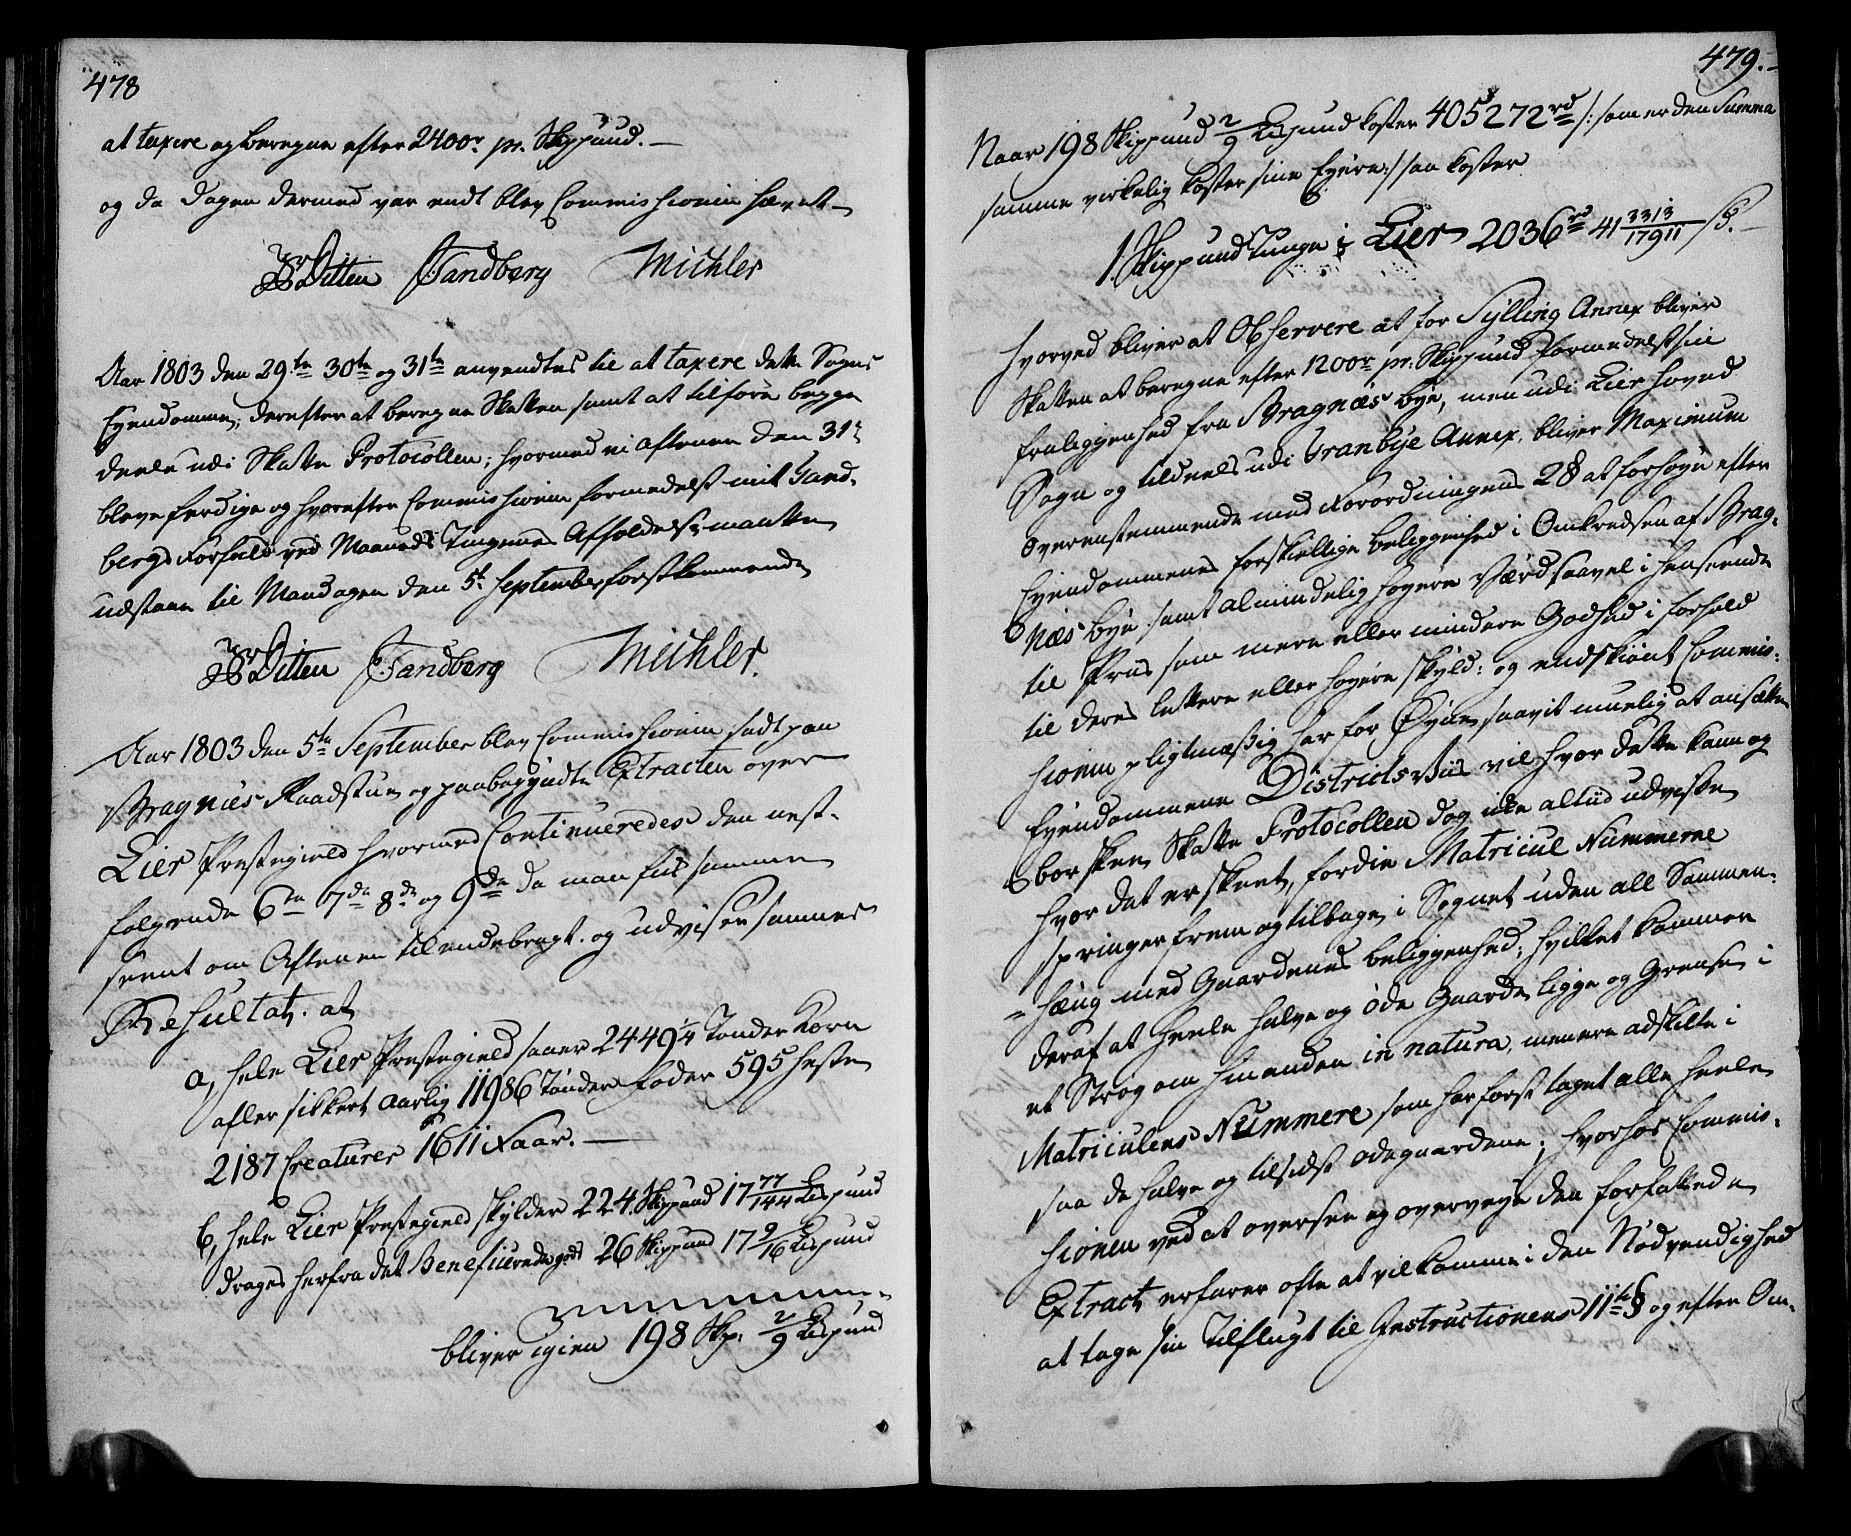 478
at taxere og beregne efter 2400r pr. Skippund. —
og da Dagen dermed var endt blev Commissionen hævet —
Ditten JSandberg Michler
Aar 1803 den 29de 30te og 31te anvendtes til at taxere dette Sogns
Eyendomme, derefter at beregne Skatten samt at tilføre begge
deele udi Skatte Protocollen; hvormed vi Aftenen den 31te
bleve færdige og hvorefter Commissionen formedelst mit Sand-
bergs Forfald ved Maaneds Tingenes Afholdelse maatte
udstaae til Mandagen den 5te September førstkommende
Ditten JSandberg Michler.
Aar 1803 den 5te September blev Commissionen sadt paa
Bragnæs Raadstue og paabegyndte Extracten over
Lier Præstegield hvormed Continueredes den nest-
følgende 6te 7de 8de og 9de da man fik samme
seent om Aftenen tilendebragt. og udviser sammes
Resultat. at
a, hele Lier Præstegield saaer 2449 1/4 Tønder Korn
afler sikkert aarlig 11986 Tønder Føder 595 Heste
2187 Creaturer 1611 Faar. —
b, hele Lier Præstegield skylder 224 Skippund 17 77/144 Lispund
drages herfra det Beneficerede gods 26 Skippund 17 9/16 Lispund
bliver igien 198 Skp. 2/9 Lispund
479. —
Naar 198 Skippund 2/9 Lispund koster 405272rd /: som er den Summa
samme virkelig koster sine Eyere :/ saa koster
1 Skippund Tunge i Lier 2036rd 41 3313/17911 s. —
hvorved bliver at Observere at for Sylling Annex bliver
Skatten at beregne efter 1200r pr. Skippund formedelst sin
fraliggenhed fra Bragnæs bye, men udi Lier Hoved
Sogn og tildeels udi Tranbye Annex, bliver Maximum
overensstemmende med Forordningens 28 at forhøye efter
Eyendommenes forskiellige beliggenhed i Omkredsen af Brag-
næs bye samt almindelig høyere Værd saavel i henseende
til Priis som mere eller mindre Godhed i forhold
til deres lettere eller høyere skyld: og endskiønt Commis-
sionen pligtmæssig har for Øyne saavit muelig at ansætte
Eyendommene Districtsviis vil hvor dette kan og
bør skee, Skatte Protocollen dog ikke altiid udviise
hvor det er skeet, fordie Matricul Nummerne
springer frem og tilbage i Sognet uden all Sammen-
hæng med Gaardenes beliggenhed; hvilket kommer
deraf at heele halve og øde Gaarde ligge og Grendse i
et Strøg om hinanden in natura, men ere adskilte i
Matriculens Nummere som har først taget alle heele
saa de halve og tilsidst ødegaardene; hvorhos Commis-
sionen ved at oversee og overveye den forfattede
Extract erfarer ofte at vil komme i den Nødvendighed
at tage sin Tilflugt til Instructionens 11te § og efter Om-